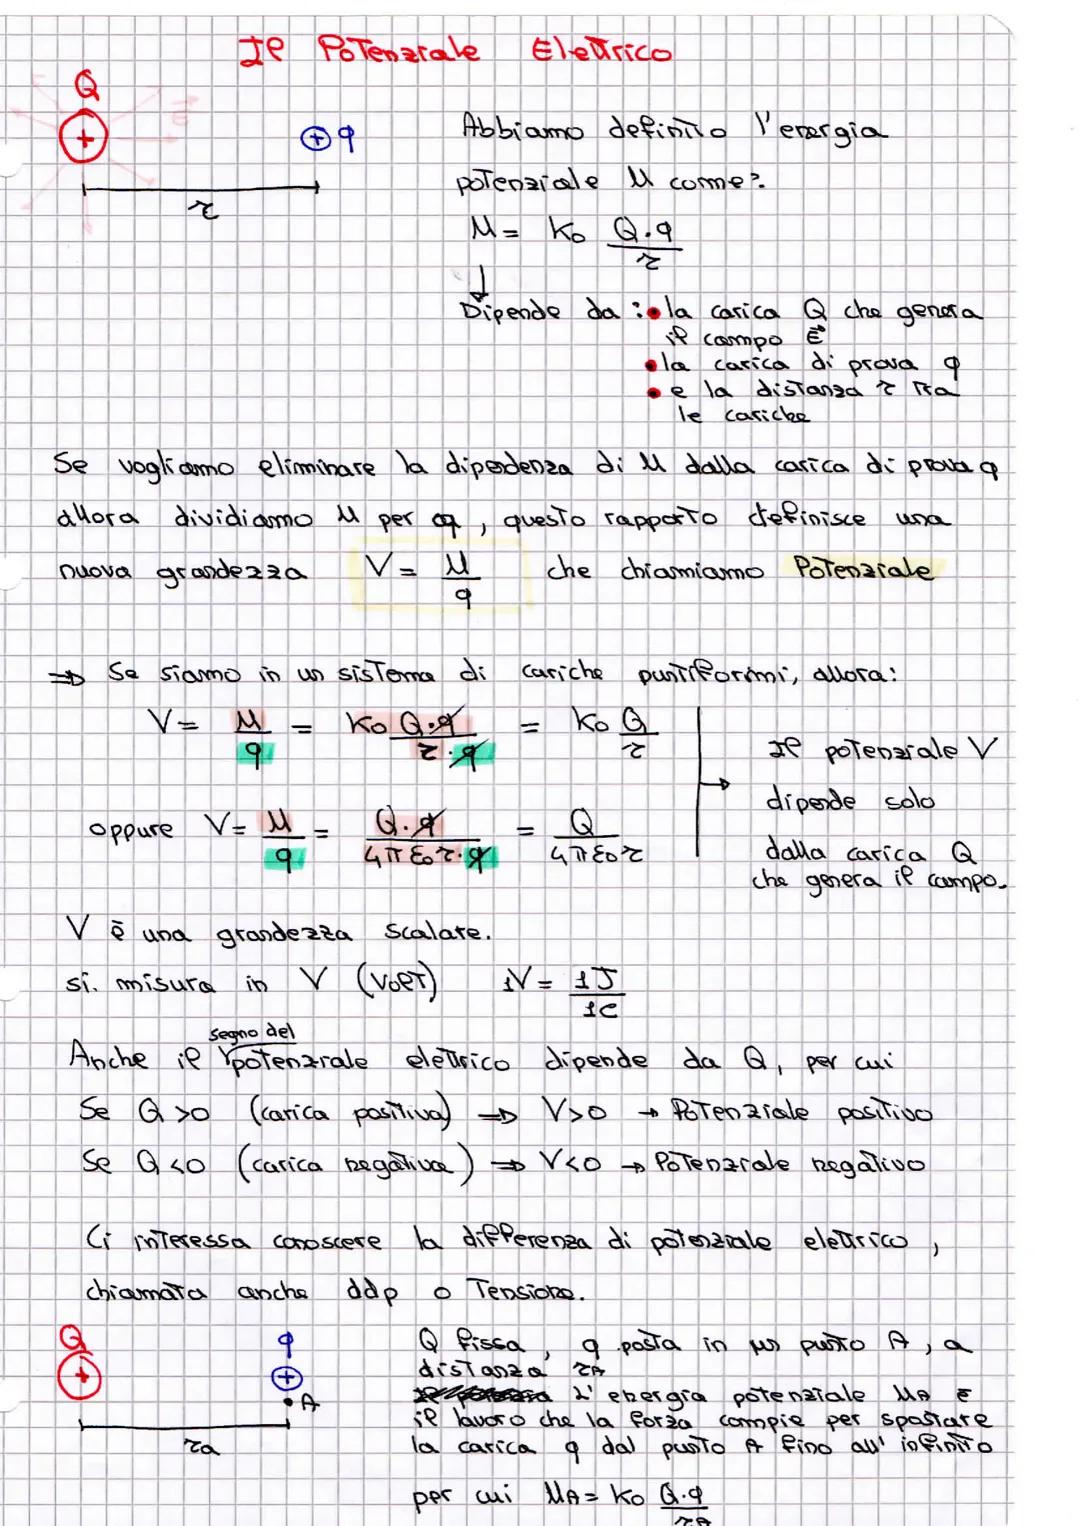 Il Potenziale Elettrico
Q
E
+
+ q
r
Abbiamo definito l'energia
potenziale U come:
U = K₀ Q·q / r
↓
Dipende da : • la carica Q che genera
il campo E⃗
• la carica di prova q
• e la distanza r tra
le cariche
Se vogliamo eliminare la dipendenza di U dalla carica di prova q
allora dividiamo U per q, questo rapporto definisce una
nuova grandezza V = U / q che chiamiamo Potenziale
⇒ Se siamo in un sistema di cariche puntiformi, allora:
V = U / q = K₀ Q·q / r·q = K₀ Q / r
oppure V = U / q = Q·q / 4πε₀r·q = Q / 4πε₀r
Il potenziale V
dipende solo
dalla carica Q
che genera il campo.
V è una grandezza scalare.
si misura in V (Volt) 1V = 1J / 1C
segno del
Anche il potenziale elettrico dipende da Q, per cui
Se Q > 0 (carica positiva) ⇒ V > 0 → Potenziale positivo
Se Q < 0 (carica negativa) ⇒ V < 0 → Potenziale negativo
Ci interessa conoscere la differenza di potenziale elettrico,
chiamata anche ddp o Tensione.
Q
+
q
+
• A
ra
Q fissa, q posta in un punto A, a
distanza rA
L'energia potenziale UA è
il lavoro che la forza compie per spostare
la carica q dal punto A fino all'infinito
per cui UA = K₀ Q·q / rA